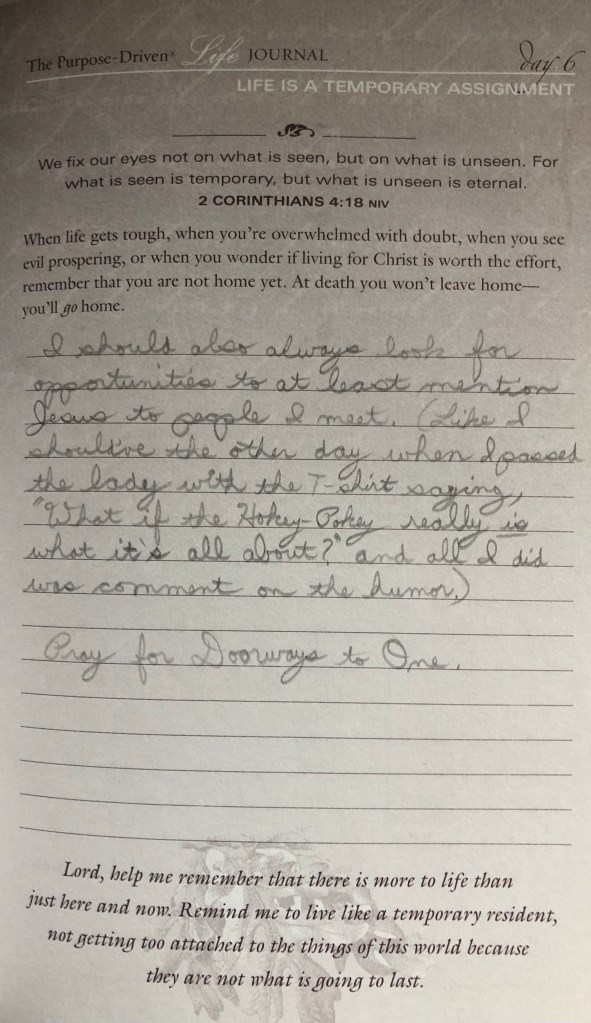 The Purpose-Driven® Life JOURNAL
day 6
LIFE IS A TEMPORARY ASSIGNMENT
We fix our eyes not on what is seen, but on what is unseen. For
what is seen is temporary, but what is unseen is eternal.
2 CORINTHIANS 4:18 NIV
When life gets tough, when you're overwhelmed with doubt, when you see
evil prospering, or when you wonder if living for Christ is worth the effort,
remember that you are not home yet. At death you won't leave home—
you'll go home.
I should also always look for
opportunities to at least mention
Jesus to people I meet. (Like I
should've the other day when I passed
the lady with the T-shirt saying,
"What if the Hokey-Pokey really is
what it's all about?" and all I did
was comment on the humor.)
Pray for Doorways to One.
Lord, help me remember that there is more to life than
just here and now. Remind me to live like a temporary resident,
not getting too attached to the things of this world because
they are not what is going to last.